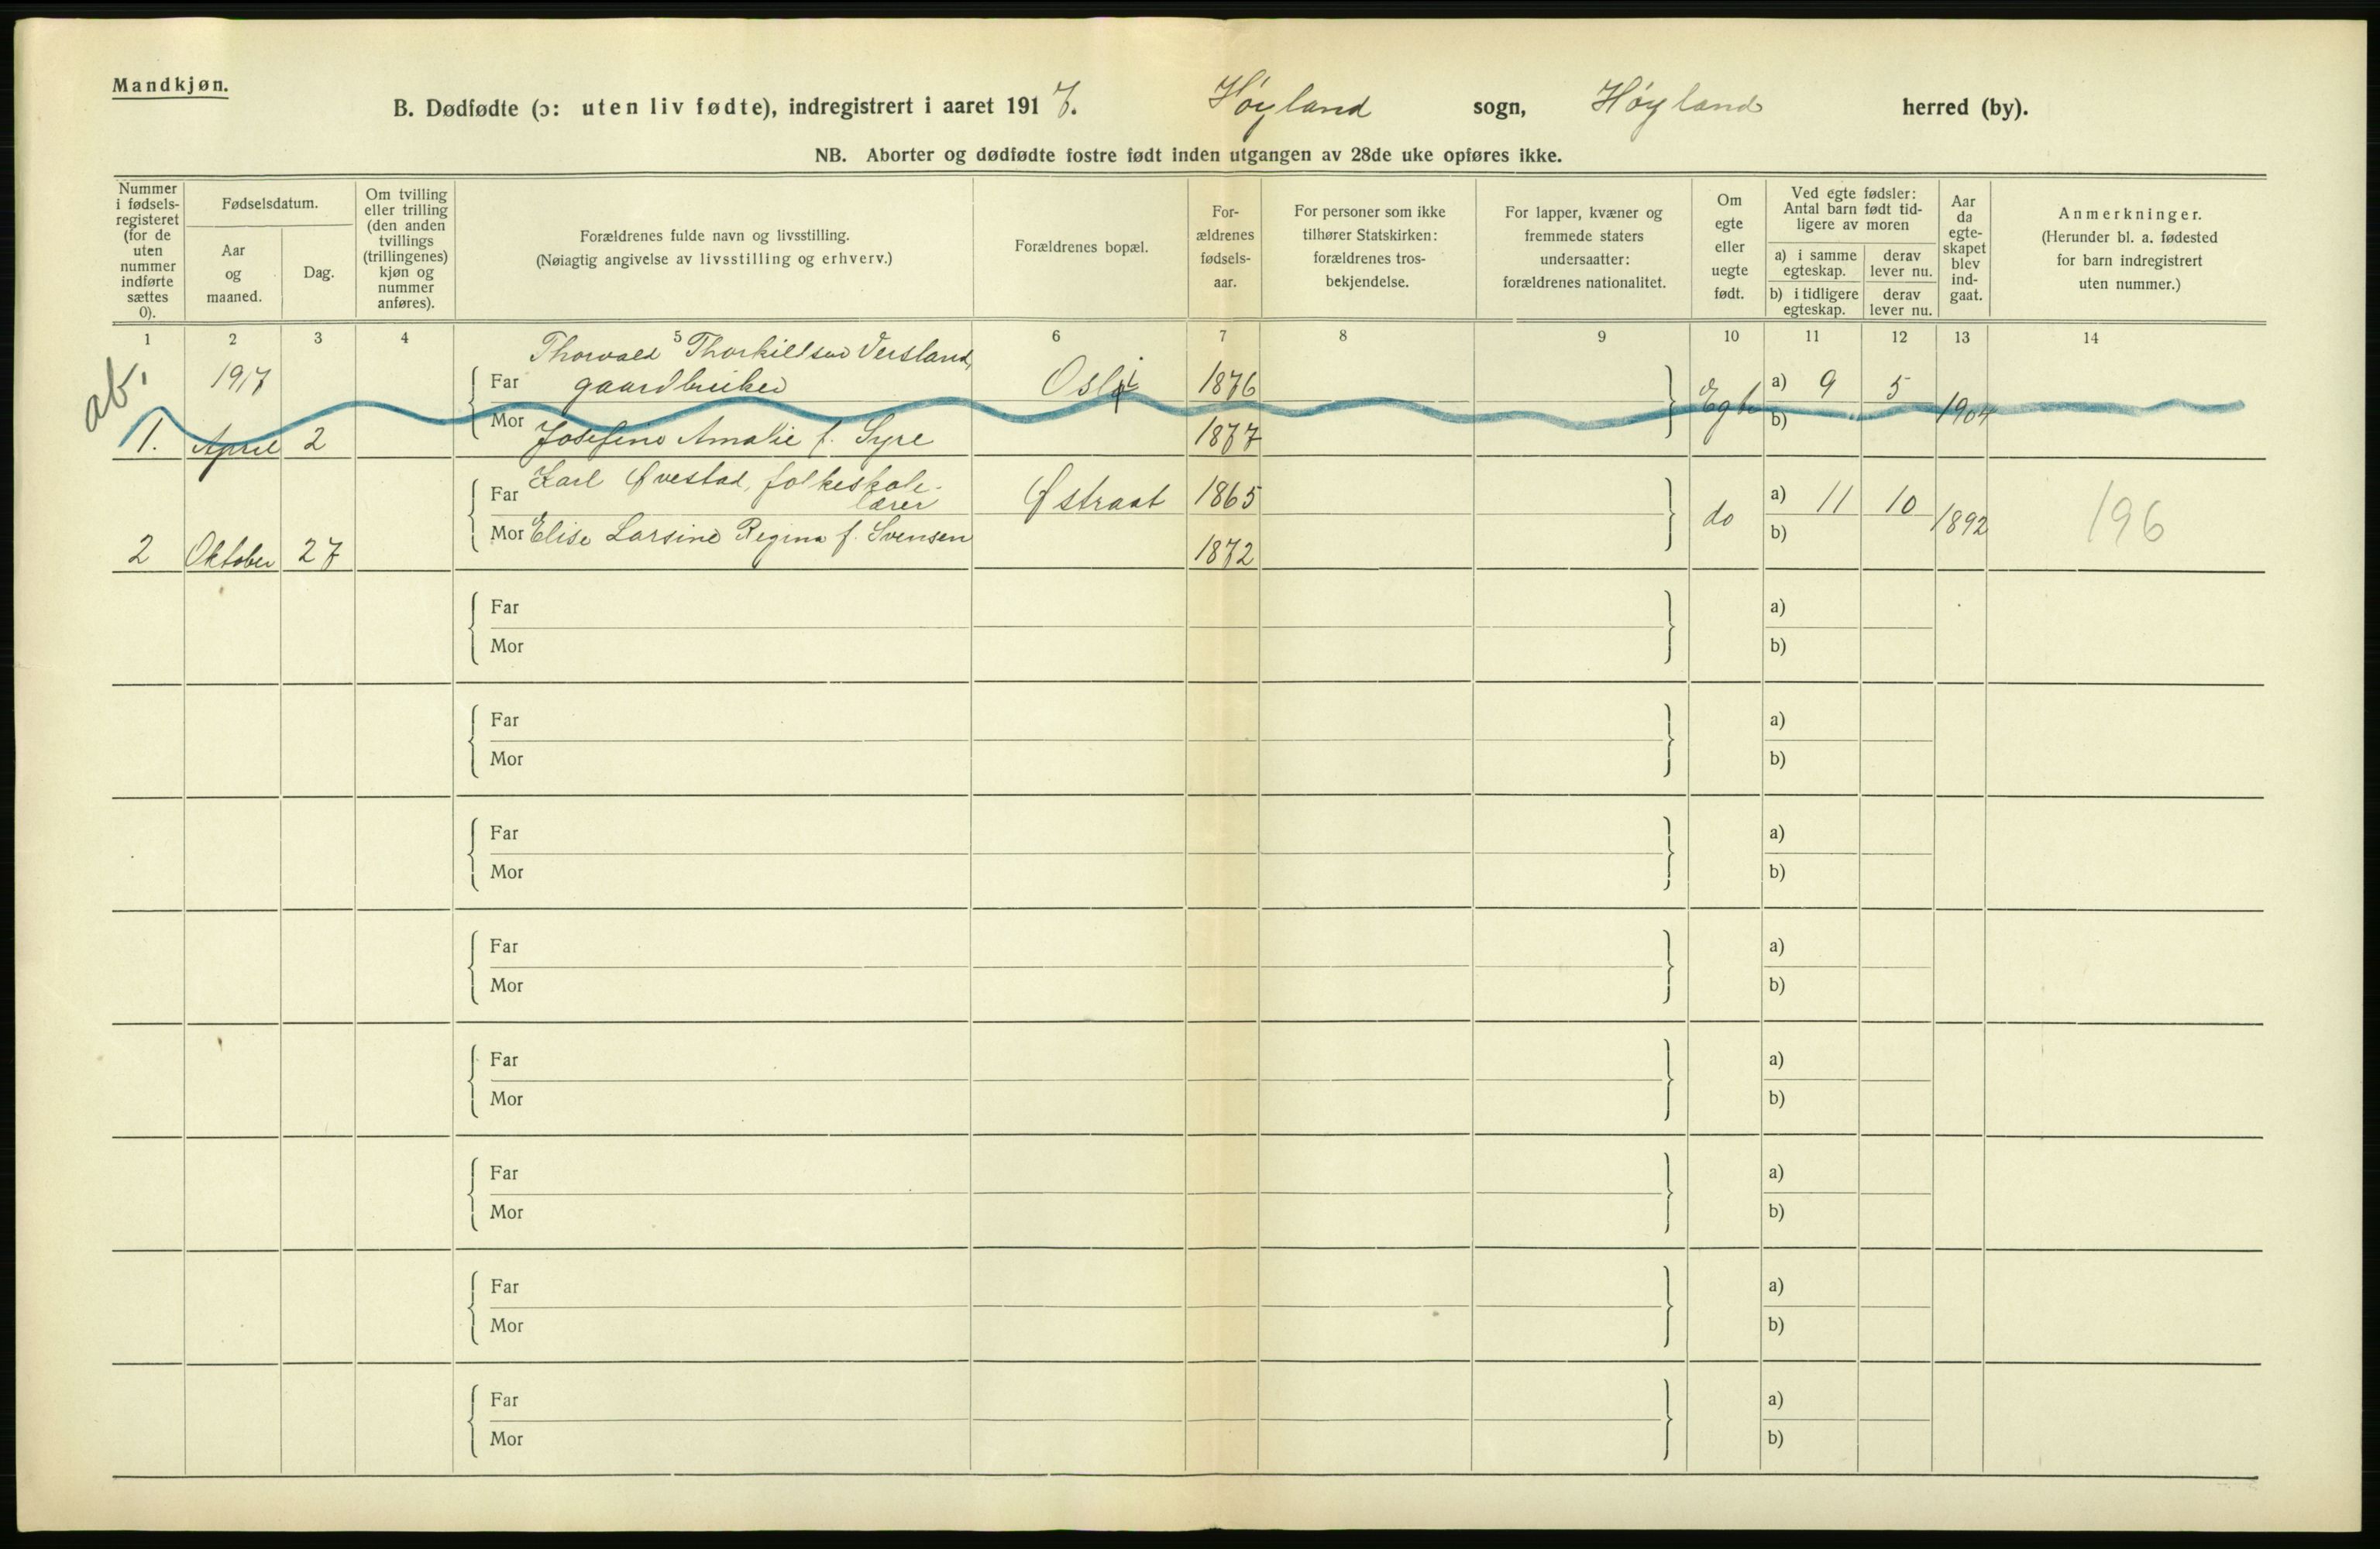 Mandkjøn.
B. Dødfødte (ɔ: uten liv fødte), indregistrert i aaret 1917. Høyland sogn, Høyland herred (by).
NB. Aborter og dødfødte fostre født inden utgangen av 28de uke opføres ikke.
Nummer
i fødsels-
registeret
(for de
uten
nummer
indførte
sættes
0).
Fødselsdatum.
Aar
og
maaned.
Dag.
Om tvilling
eller trilling
(den anden
tvillings
(trillingenes)
kjøn og
nummer
anføres).
Forældrenes fulde navn og livsstilling.
(Nøiagtig angivelse av livsstilling og erhverv.)
Forældrenes bopæl.
For-
ældrenes
fødsels-
aar.
For personer som ikke
tilhører Statskirken:
forældrenes tros-
bekjendelse.
For lapper, kvæner og
fremmede staters
undersaatter:
forældrenes nationalitet.
Om
egte
eller
uegte
født.
Ved egte fødsler:
Antal barn født tid-
ligere av moren
a) i samme
egteskap.
derav
lever nu.
b) i tidligere
egteskap.
derav
lever nu.
Aar
da
egte-
skapet
blev
ind-
gaat.
Anmerkninger.
(Herunder bl. a. fødested
for barn indregistrert
uten nummer.)
1 2 3 4 5 6 7 8 9 10 11 12 13 14
ab.
1917
Thorvald Thorkillsen Versland,
Far gaardbruker Osli 1876 Egte a) 9 5 1904
1. April 2 Mor Josefine Amalie f. Syre 1877 b)
Karl Øvestad, folkeskole-
Far lærer Østraat 1865 do a) 11 10 1892 196
2 Oktober 27 Mor Elise Larsine Regina f. Svensen 1872 b)
Far a)
Mor b)
Far a)
Mor b)
Far a)
Mor b)
Far a)
Mor b)
Far a)
Mor b)
Far a)
Mor b)
Far a)
Mor b)
Far a)
Mor b)